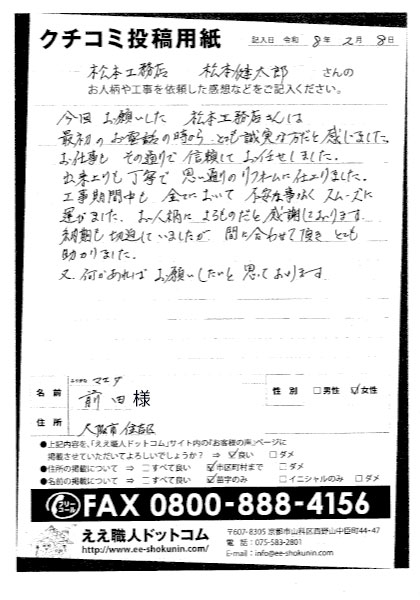 クチコミ投稿用紙
記入日 令和 8年 2月 8日
松本工務店 松本健太郎 さんの
お人柄や工事を依頼した感想などをご記入ください。
今回お願いした 松本工務店さんは
最初のお電話の時から とても誠実な方だと感じました。
お仕事も その通りで 信頼して お任せしました。
出来上りも 丁寧で 思い通りのリフォームに仕上りました。
工事期間中も 全てにおいて 不安な事なく スムーズに
運びました。お人柄に よるものだと感謝しております。
納期も 切迫していましたが 間に合わせて頂き とても
助かりました。
又、何かあれば お願いしたいと 思っております。
フリガナ マエダ
名前 前田様
性別 □男性 ☑女性
住所 大阪市住吉区
●上記内容を、「ええ職人ドットコム」サイト内の「お客様の声」ページに
掲載させていただいてよろしいでしょうか? ⇒ ☑良い □ダメ
●住所の掲載について ⇒ □すべて良い ☑市区町村まで □ダメ
●名前の掲載について ⇒ □すべて良い ☑苗字のみ □イニシャルのみ □ダメ
フリーコール FAX 0800-888-4156
ええ職人ドットコム
http://www.ee-shokunin.com/
〒607-8305 京都市山科区西野山中臣町44-47
電話:075-583-2801
E-mail:info@ee-shokunin.com